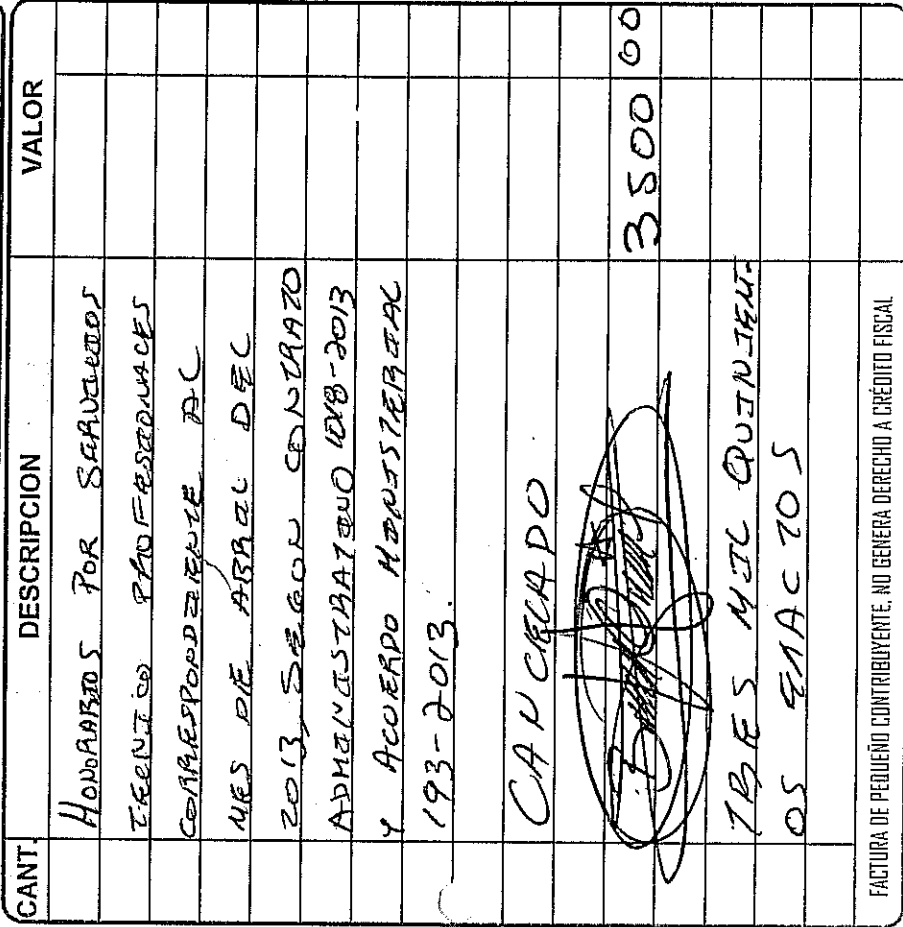 CANT. DESCRIPCION VALOR
HONORARIOS POR SERVICIOS
TECNICO PROFESIONALES
CORRESPONDIENTE AL
MES DE ABRIL DEL
2013, SEGUN CONTRATO
ADMINISTRATIVO 1018-2013
Y ACUERDO MINISTERIAL
193-2013.
CANCELADO
3500 00
TRES MIL QUINIENT-
OS EXACTOS
FACTURA DE PEQUEÑO CONTRIBUYENTE, NO GENERA DERECHO A CRÉDITO FISCAL